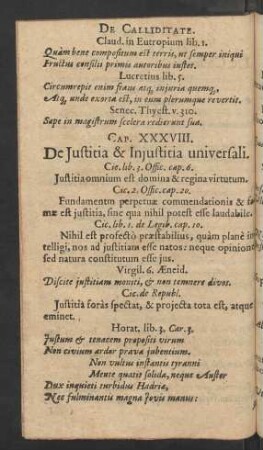 DE CALLIDITATE.
Claud. in Eutropium lib. 1.
Quàm bene compositum est terris, ut semper iniqui
Fructus consilii primis autoribus instet.
Lucretius lib. 5.
Circumrepit enim fraus atq; injuria quemq;,
Atq; unde exorta est, in eum plerumque revertit.
Senec. Thyest. v. 310.
Sæpe in magistrum scelera redierunt sua.
CAP. XXXVIII.
De Justitia & Injustitia universali.
Cic. lib. 3. Offic. cap. 6.
Justitia omnium est domina & regina virtutum.
Cic. 2. Offic. cap. 20.
Fundamentum perpetuæ commendationis & fa-
mæ est justitia, sine qua nihil potest esse laudabile.
Cic. lib. 1. de Legib. cap. 10.
Nihil est profectò præstabilius, quàm planè in-
telligi, nos ad justitiam esse natos: neque opinione
sed natura constitutum esse jus.
Virgil. 6. Æneid.
Discite justitiam moniti, & non temnere divos.
Cic. de Republ.
Justitia foràs spectat, & projecta tota est, atque
eminet.
Horat. lib. 3. Car. 3.
Justum & tenacem propositi virum
Non civium ardor prava jubentium.
Non vultus instantis tyranni
Mente quatit solida, neque Auster
Dux inquieti turbidus Hadriæ,
Nec fulminantis magna Jovis manus: